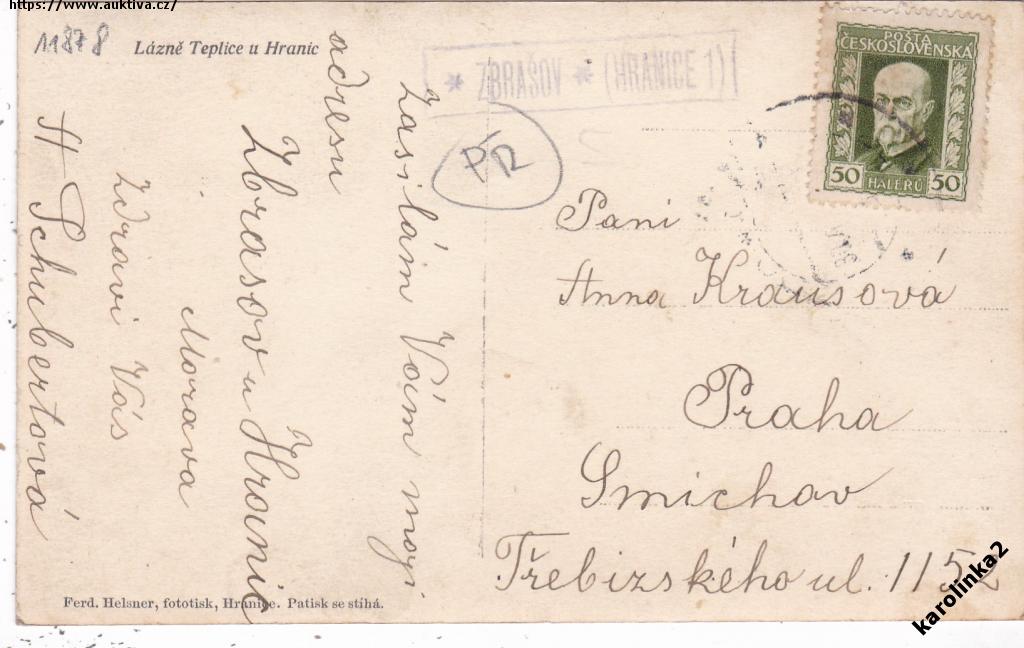 https://www.auktiva.cz/
11878
Lázně Teplice u Hranic
* ZBRAŠOV * (HRANICE 1)
PR
POŠTA
ČESKOSLOVENSKÁ
50 HALÉŘŮ 50
Zasilám Vám moji
adresu
Zbrasov u Hranic
Morava
Zdravi Vás
A Schubertová
Paní
Anna Krausová
Praha
Smichav
Třebizského ul. 1152
Ferd. Helsner, fototisk, Hranice. Patisk se stíhá.
karolinka2